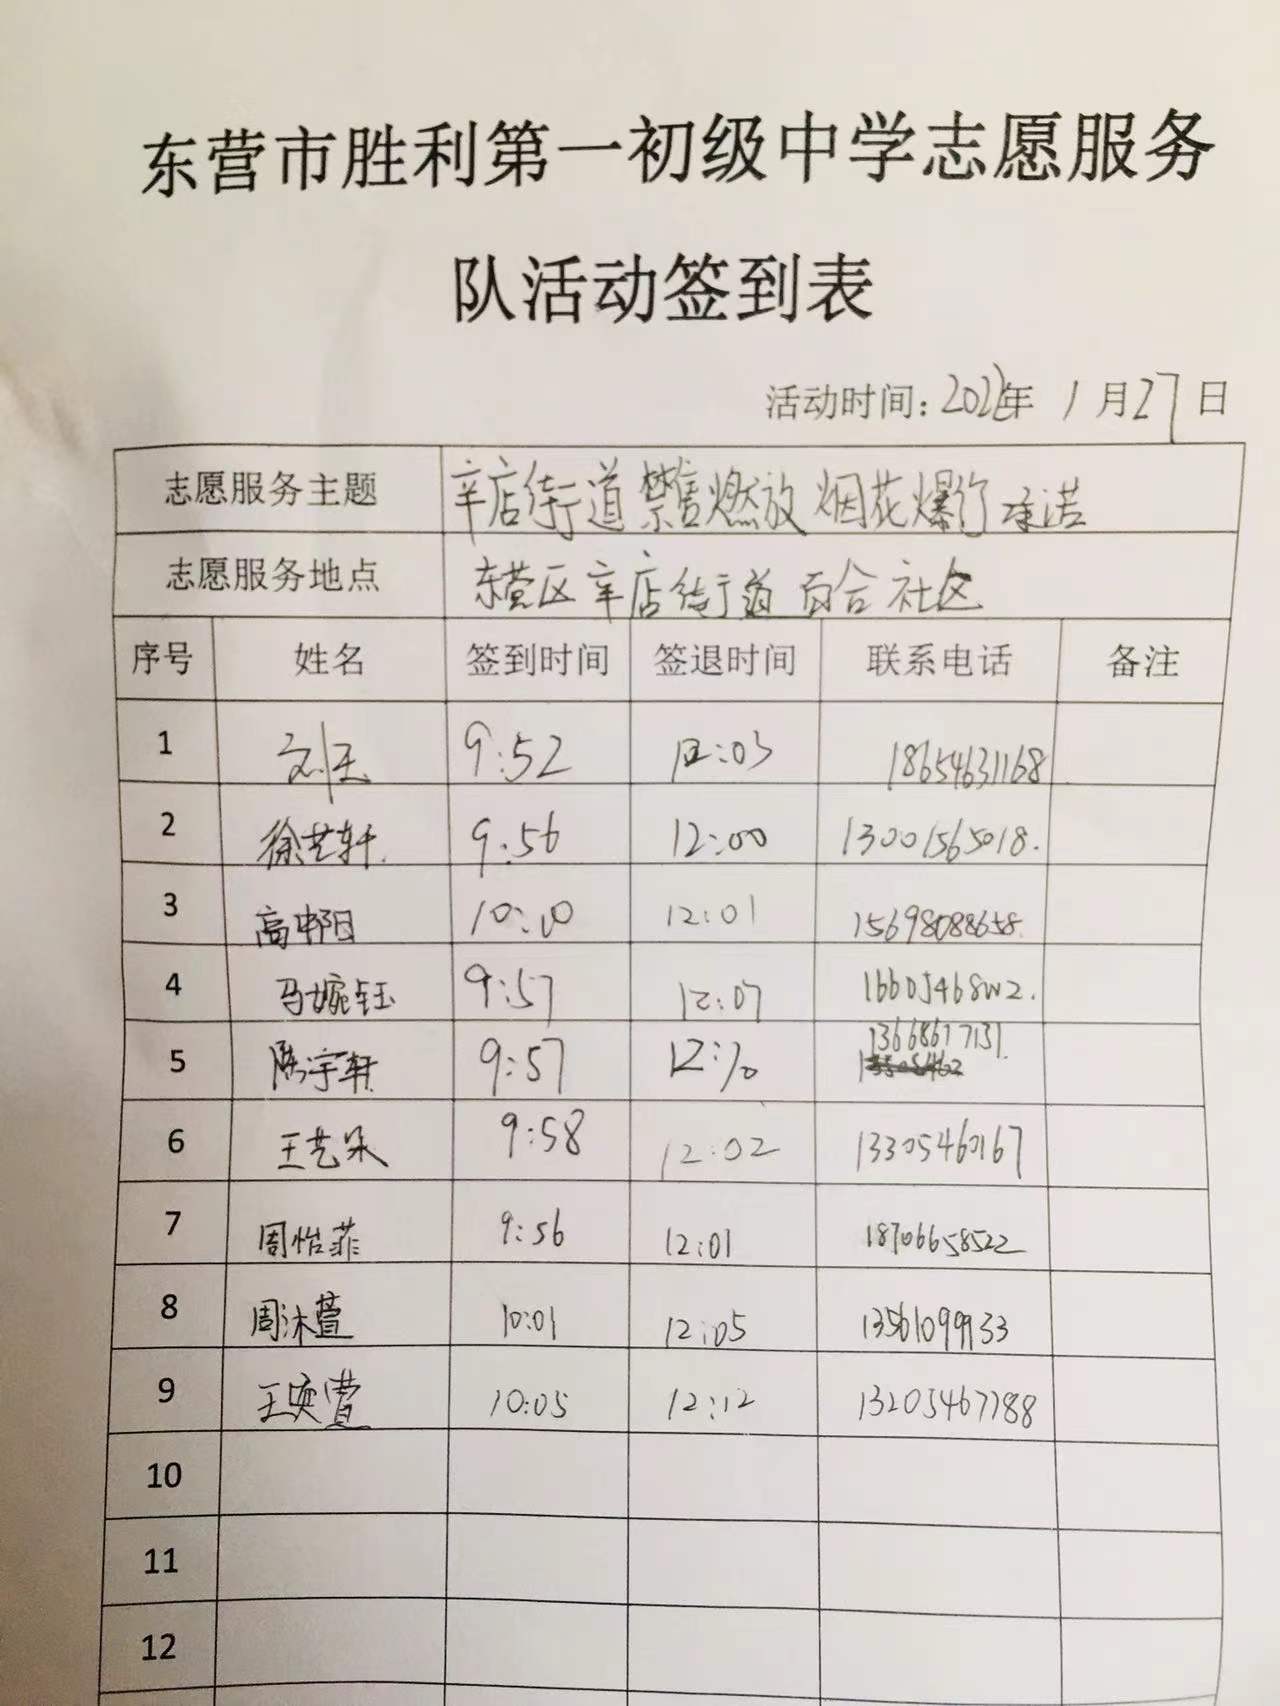 东营市胜利第一初级中学志愿服务
队活动签到表
活动时间：2022年 1月27日
志愿服务主题 辛店街道禁售燃放烟花爆竹承诺
志愿服务地点 东营区辛店街道百合社区
序号 姓名 签到时间 签退时间 联系电话 备注
1 9:52 12:03 18654631168
2 徐艺轩 9:56 12:00 13001565018.
3 高申阳 10:00 12:01 15698088658.
4 马婉钰 9:57 12:07
5 陈宇轩 9:57 12:10 13668617131.
6 王艺朵 9:58 12:02 13305460167
7 周怡菲 9:56 12:01 18706658522
8 周沐萱 10:01 12:05 13561099933
9 10:05 12:12 13205467788
10
11
12